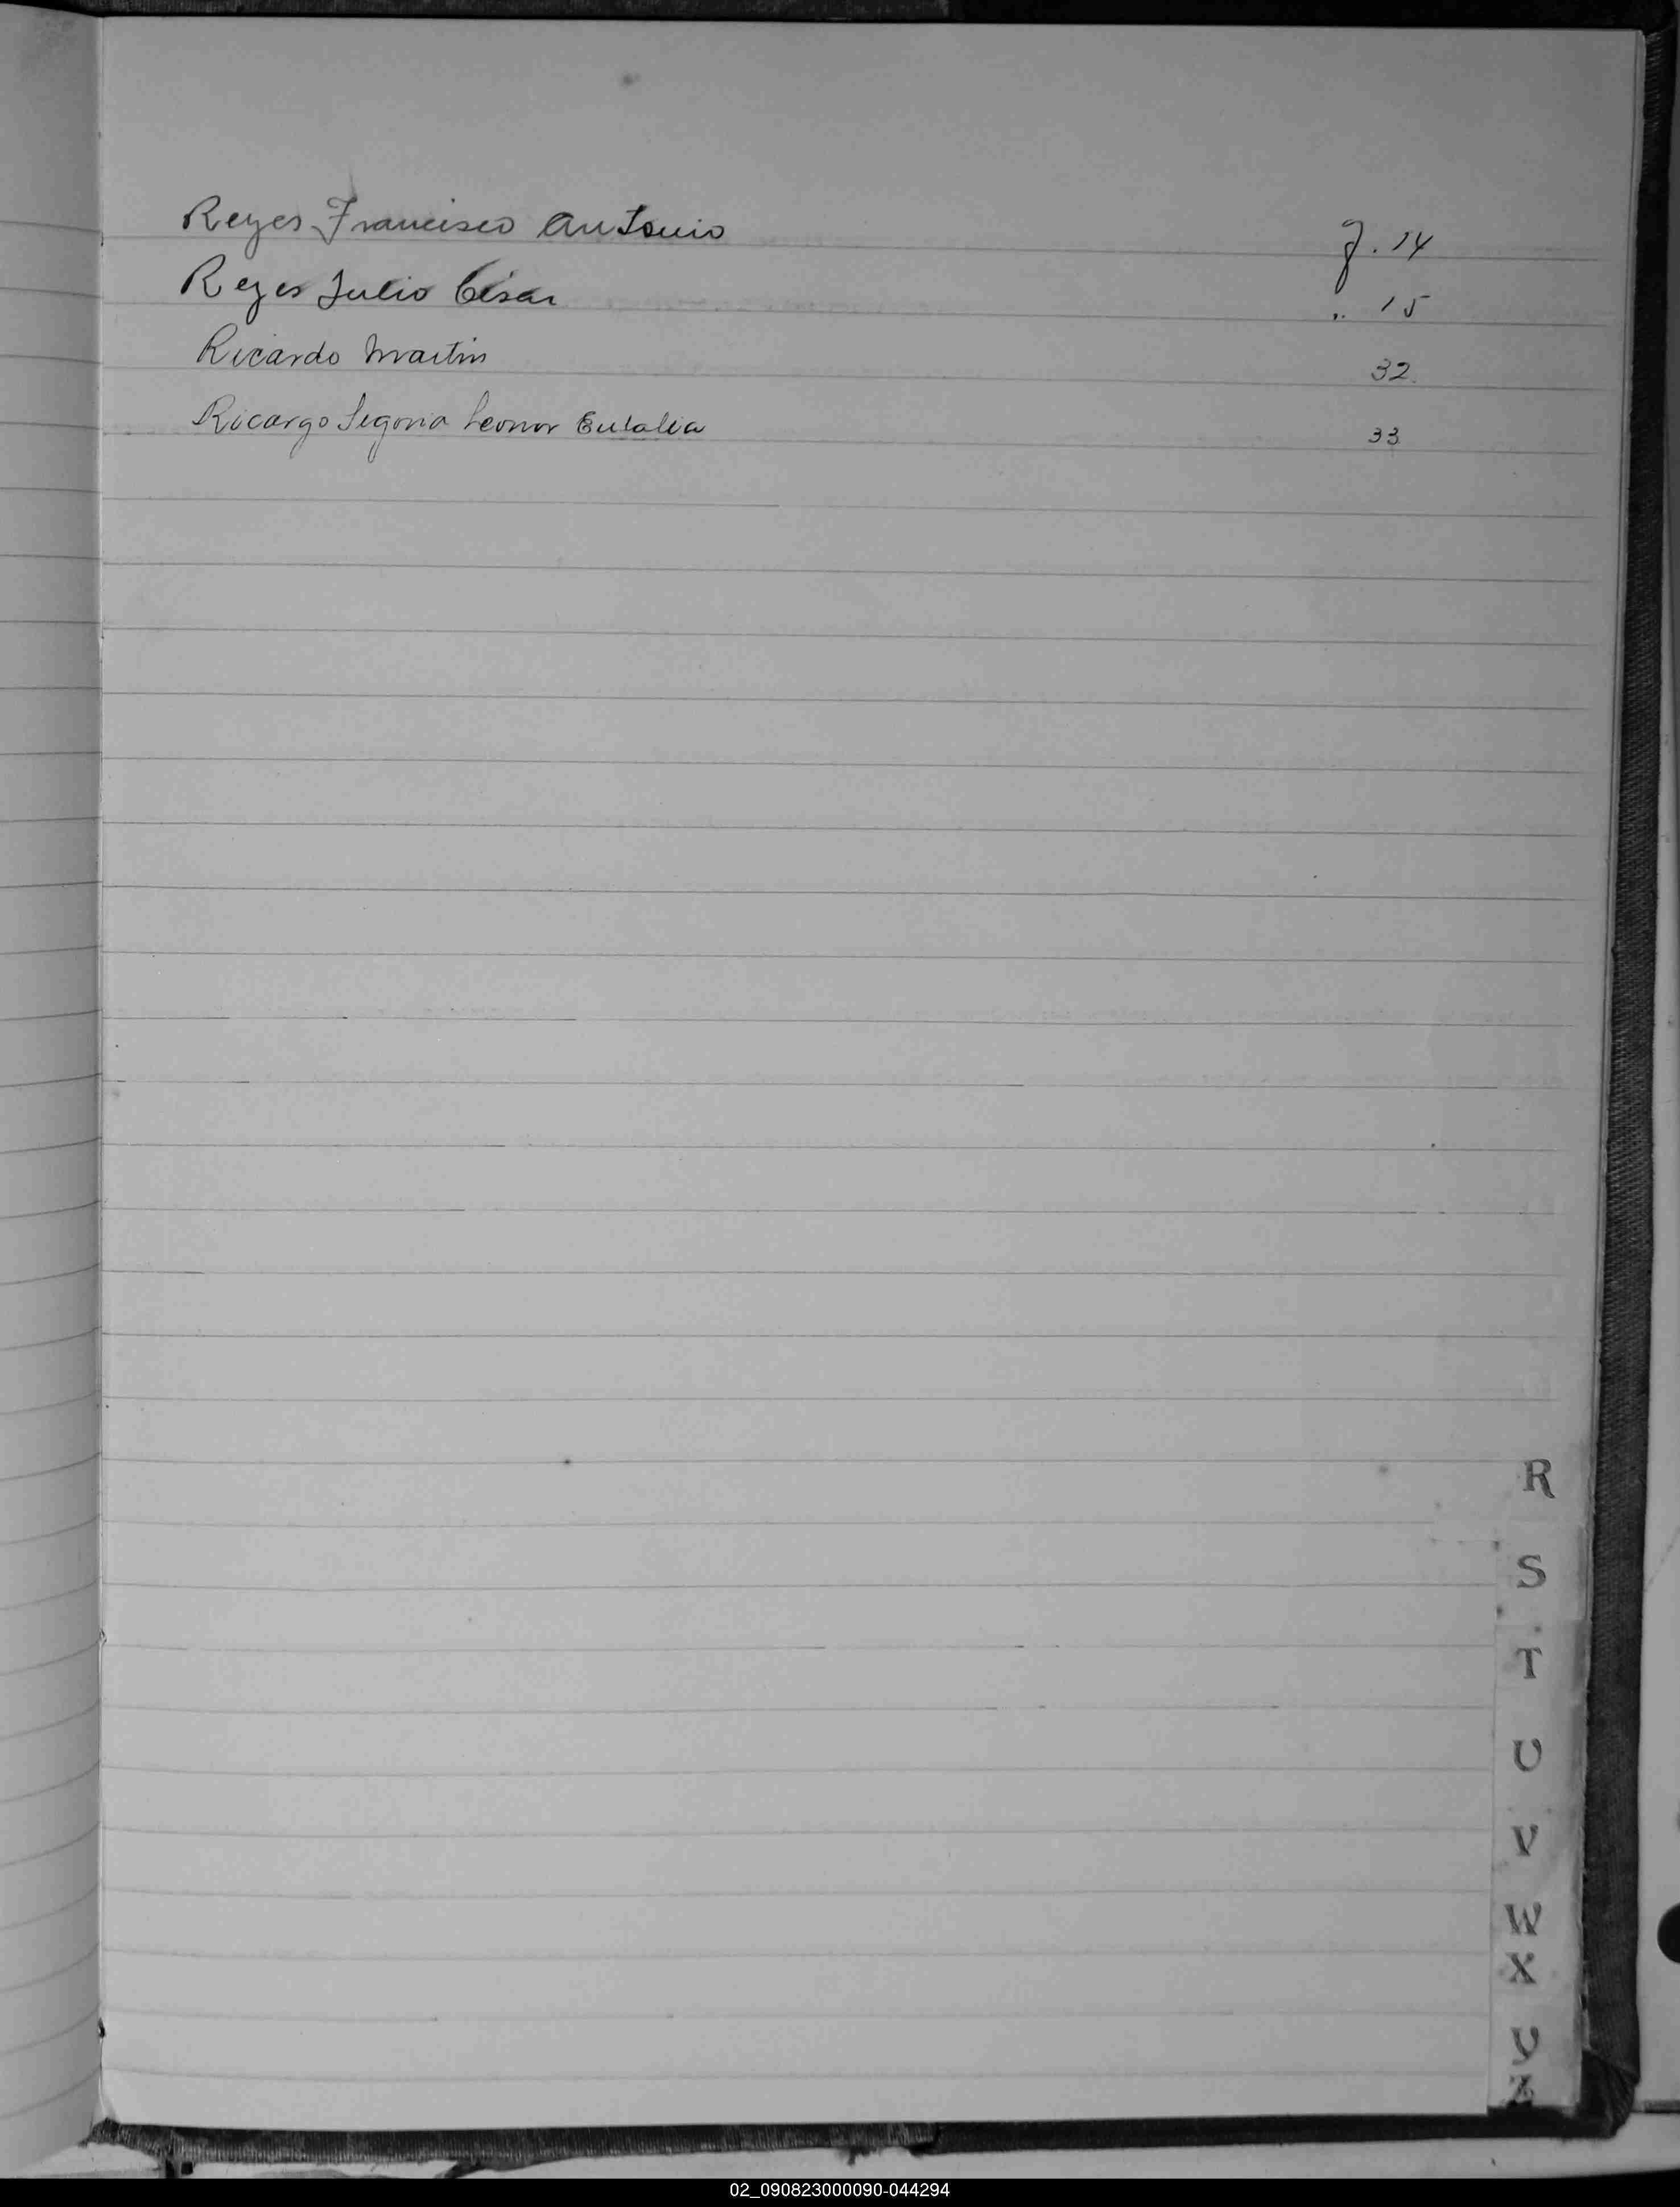 Reyes Francisco Antonio f. 14
Reyes Julio César .. 15
Ricardo Martin 32.
Ricargo Segovia Leonor Eulalia 33
R
S
T
U
V
W
X
Y
Z
02_090823000090-044294